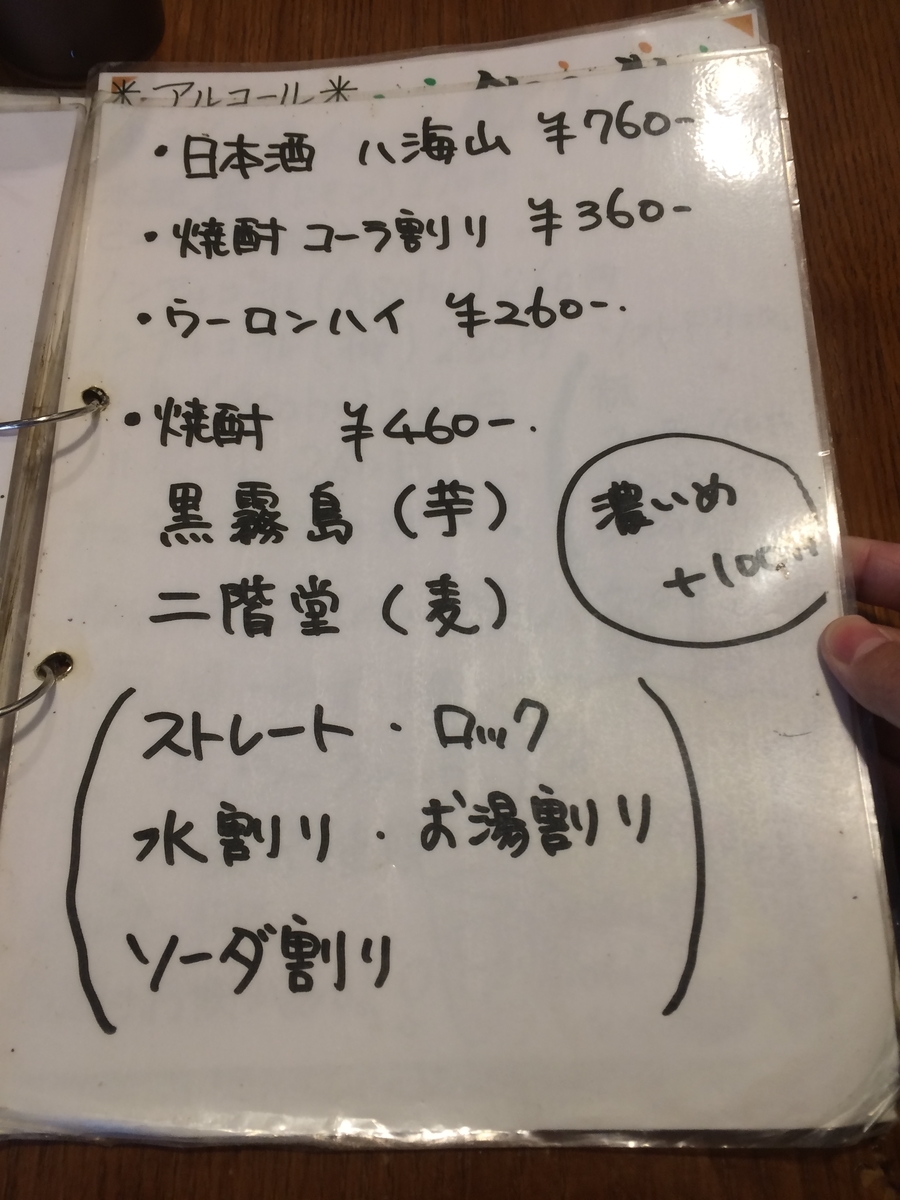 ＊アルコール＊
・日本酒 八海山 ¥760-
・焼酎 コーラ割り ¥360-
・ウーロンハイ ¥260-.
・焼酎 ¥460-.
黒霧島（芋）
二階堂（麦）
濃いめ
ストレート・ロック
水割り・お湯割り
ソーダ割り